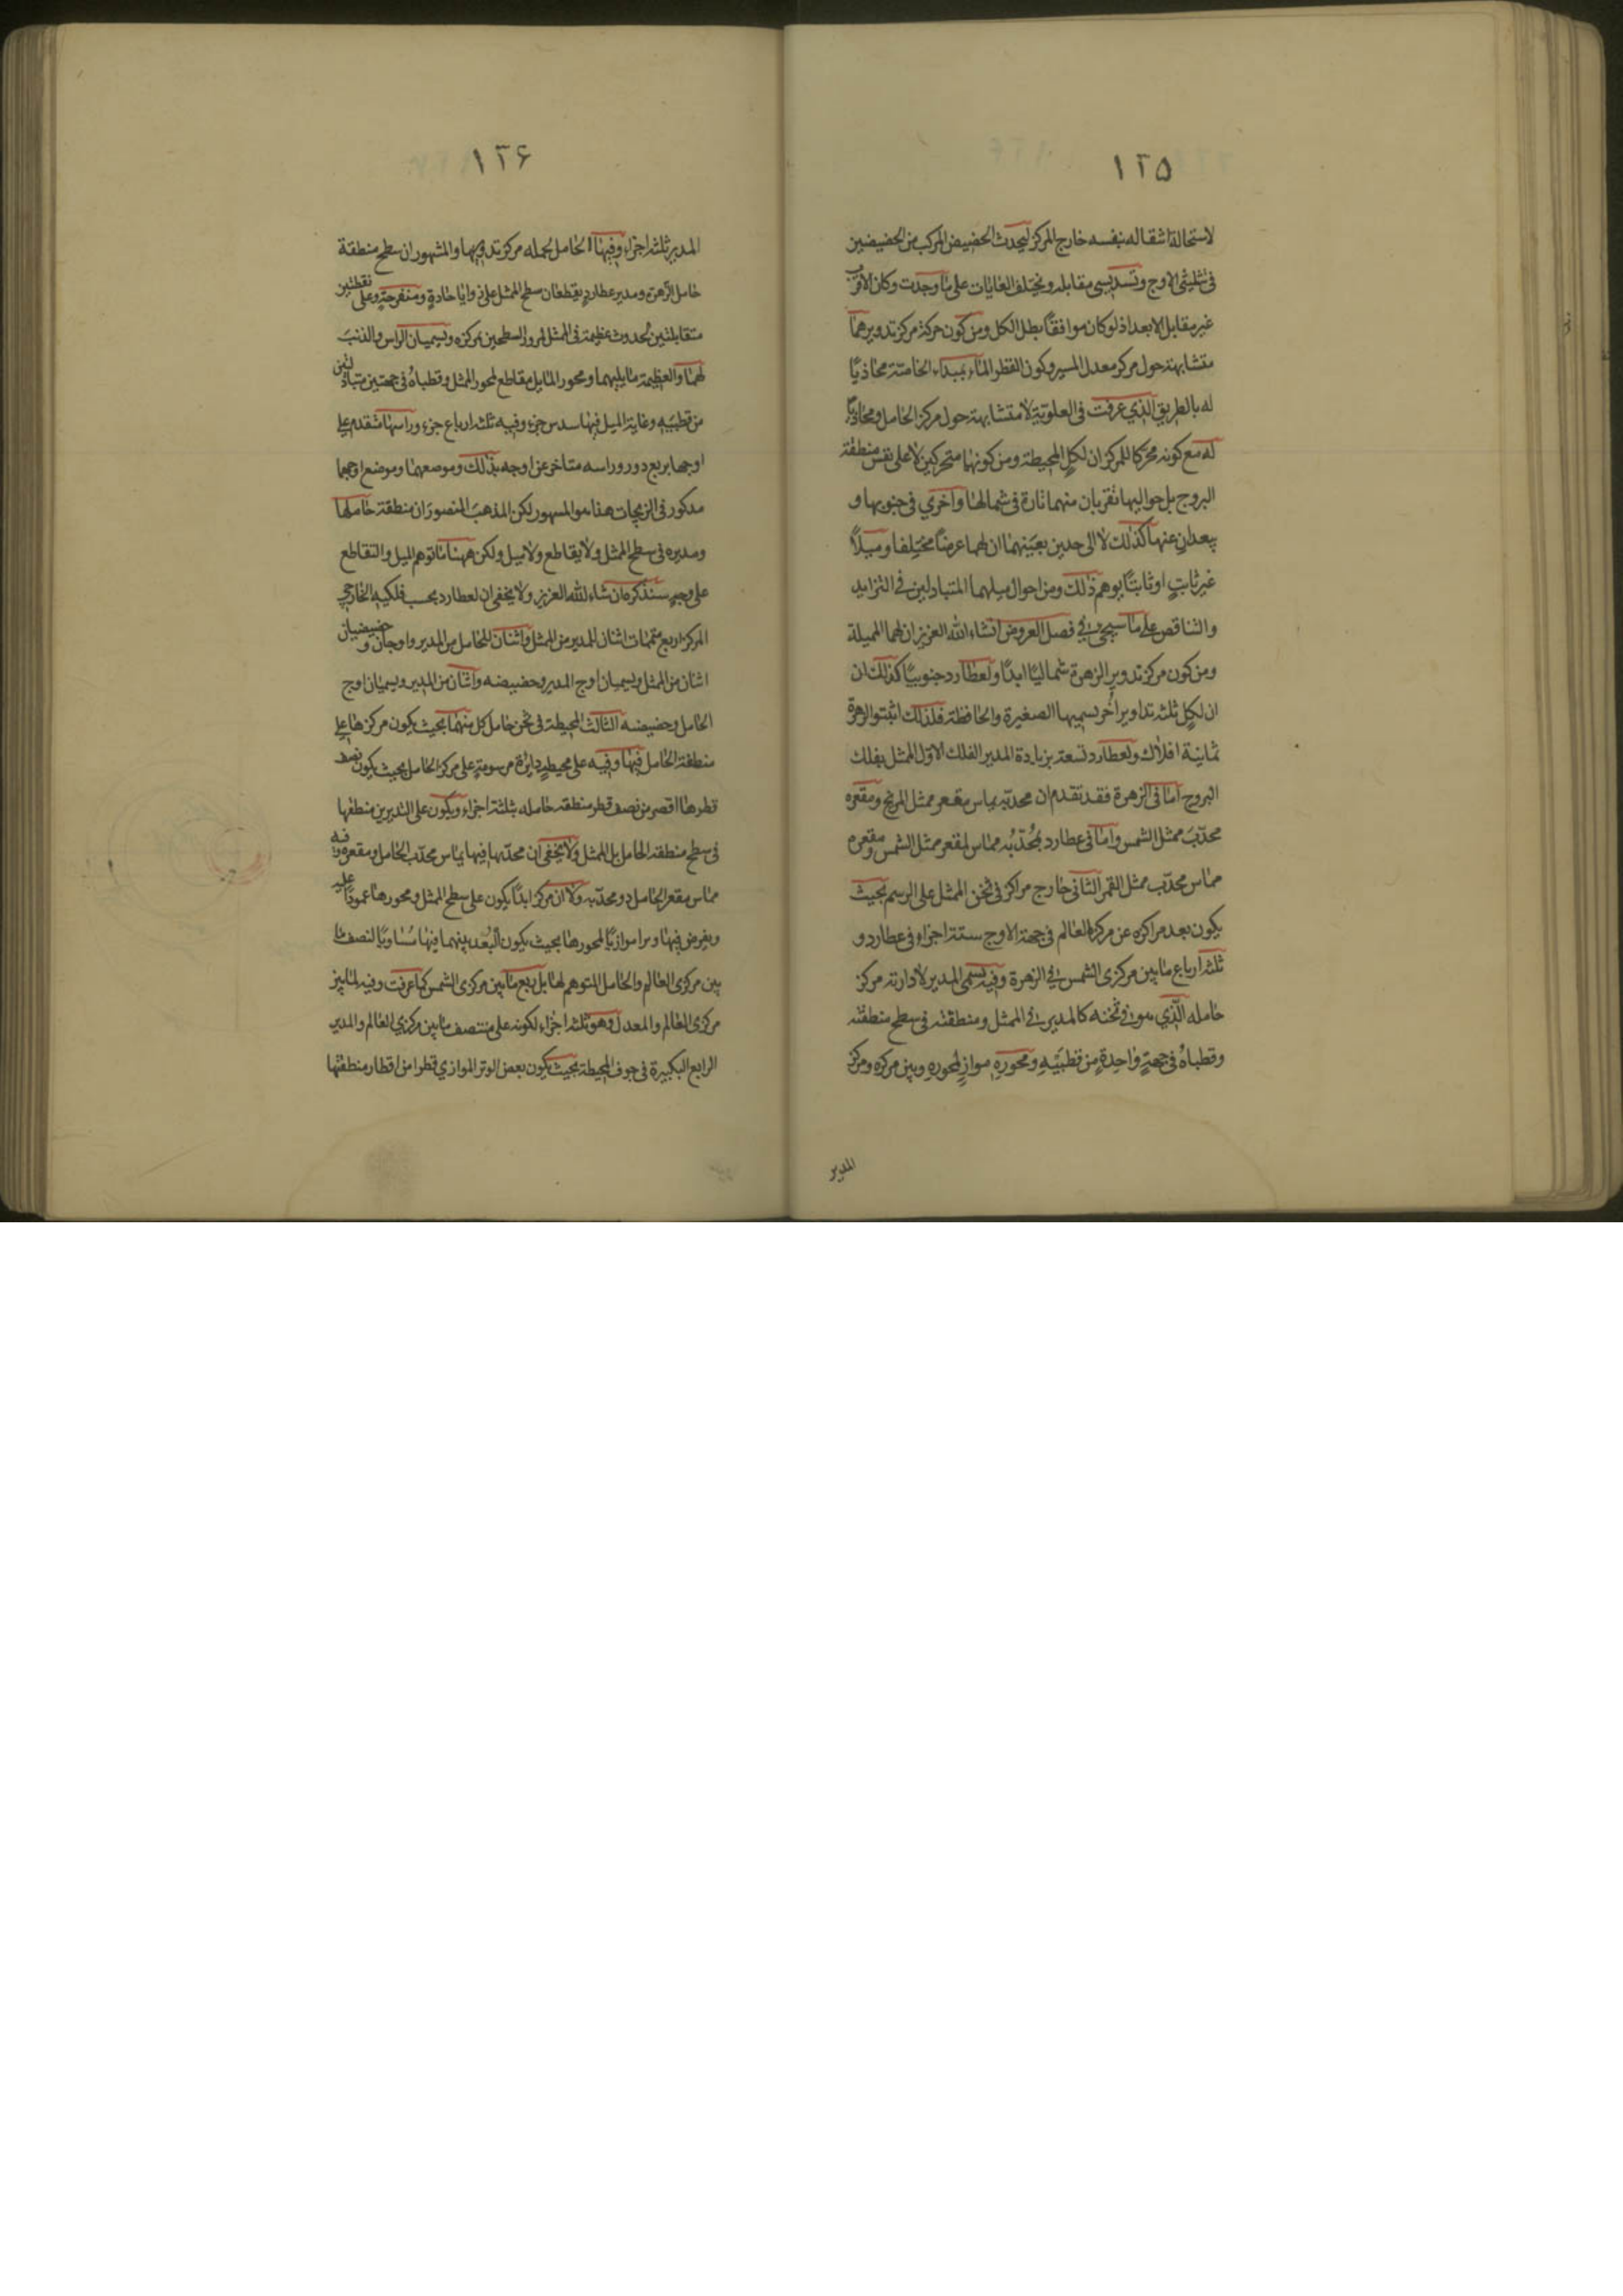 ١٢٥
لاستحالة اشقاله بنفسه خارج المركز ليحدث الحضيض المركب من الحضيضين
فى تثليثى الاوج وتسديسى مقابله ويختلف الغايات على ما وجدت وكان الاقرب
غير مقابل الابعد اذ لو كان موافقًا بطل الكل ومن كون حركة مركز تدويرهما
متشابهة حول مركز معدل المسير وكون القطر المار بمبداء الخاصة محاذيًا
له بالطريق الذي عرفت فى العلوية لا متشابهة حول مركز الحامل ومحاذيًا
له مع كونه محركا للمركز ان لكلٍ المحيطة ومن كونهما متحركين لا على نفس منطقة
البروج بل حواليها تقربان منهما تارة فى شمالها واخري فى جنوبها و
يبعدان عنها كذلك لا الى حدين بعينهما ان لهما عرضًا مختلفا وميلاً
غير ثابتٍ او ثابتًا يوهم ذلك ومن احوال ميلهما المتبادلين فى التزايد
والتناقص على ما سيجئ في فصل العروض انشاء الله العزيز ان لهما المميلة
ومن كون مركز تدوير الزهرة شماليًا ابدًا ولعطارد جنوبيًا كذلك ان
ان لكلٍ ثلثه تداوير اُخر يسميها الصغيرة والحافظة فلذلك اثبتوا لزهرة
ثمانية افلاك ولعطارد تسعة بزيادة المدير الفلك الاول الممثل بفلك
البروج اما فى الزهرة فقد تقدم ان محدبه يماس مقعر ممثل المريخ ومقعره
محدّبَ ممثل الشمس واما فى عطارد فمُحدّبُه مماس لمقعر ممثل الشمس ومقعره
مماس محدّب ممثل القمر الثانى خارج مراكز فى ثخن الممثل على الرسم بحيث
يكون بعد مراكزه عن مركز العالم فى جهة الاوج ستة اجزاء فى عطارد و
ثلثه ارباع ما بين مركزى الشمس في الزهرة وفيه يسمى المدير لادارته مركز
حامله الّذي هو فى ثخنه كالمدير في الممثل ومنطقته فى سطح منطقته
وقطباهُ فى جهةٍ واحدةٍ من قطبَيْهِ ومحورهِ موازٍ لمحورهِ وبين مركزه ومركز
المدير
١٢۶
المدير ثلثه اجزاء وفيها الحامل لحمله مركز تدويرها والمشهور ان سطح منطقة
حامل الزهرة ومدير عطارد يقطعان سطح الممثل على زوايا حادةٍ ومنفرجةٍ وعلى نقطتين
متقابلتين لحدوث عظيمة فى الممثل لمرور السطحين بمركزه ويسميان الراس والذنبَ
لهما والعظيمة مايليهما ومحور المايل مقاطع لمحور الممثل وقطباهُ فى جهتين متبادلتين
من قطبَيه وغاية الميل فيها سدس جزء وفيه ثلثه ارباع جزء وراسها متقدم على
اوجها بربع دور وراسه متاخر عن اوجه بذلك وموضعهما وموضع اوجهما
مذكور فى الزيجات هذا هو المشهور لكن المذهبَ المنصورَ ان منطقة حاملها
ومديره فى سطح الممثل ولا يقاطع ولا ميل ولكن ههنا ما توهم الميل والتقاطع
على وجهٍ سنذكره ان شاء الله العزيز ولا يخفى ان لعطارد بحسب فلكيه الخارجى
المركز اربع متممات اثنان للمدير من الممثل واثنان للحامل من المدير واوجان وحضيضان
اثنان من الممثل ويسميان اوج المدير وحضيضه واثنان من المدير ويسميان اوج
الحامل وحضيضه الثالث المحيطة فى ثخن حامل كل منهما بحيث يكون مركزها على
منطقة الحامل فيها وفيه على محيطِ دايرةٍ مرسومةٍ على مركز الحامل بحيث يكون نصف
قطرها اقصر من نصف قطر منطقة حامله بثلثة اجزاء ويكون على التدبيرين منطقتها
فى سطح منطقة الحامل بل الممثل ولا يخفى ان محدّبها فيها يماس محدّب الحامل ومقعره وفيه
مماس مقعر الحامل دون محدّبه ولا ان مركز ابدًا يكون على سطح الممثل ومحورها عمودًا عليه
ويفرض فيها وترا موازيًا لمحورها بحيث يكون البُعد بينهما فيها مُساويًا لنصف ما
بين مركزى العالم والحامل المتوهم لها بل ربع ما بين مركزى الشمس كما عرفت وفيه لما بين
مركزى العالم والمعدل وهو ثلثه اجزاء لكونه على منتصف ما بين مركزي العالم والمدير
الرابع الكبيرة فى جوف المحيطة بحيث يكون بعض الوتر الموازي قطرا من اقطار منطقتها